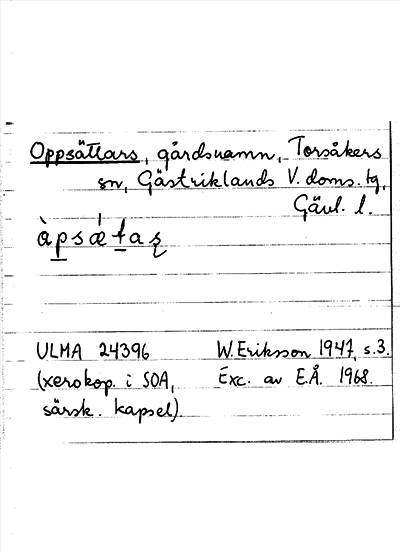 Oppsättars, gårdsnamn, Torsåkers
sn, Gästriklands V. doms. tg,
Gävl. l.
àp̲sǽt̲aʂ
ULMA 24396
(xerokop. i SOA,
särsk. kapsel)
W. Eriksson 1947, s. 3.
Exc. av E.Å. 1968.